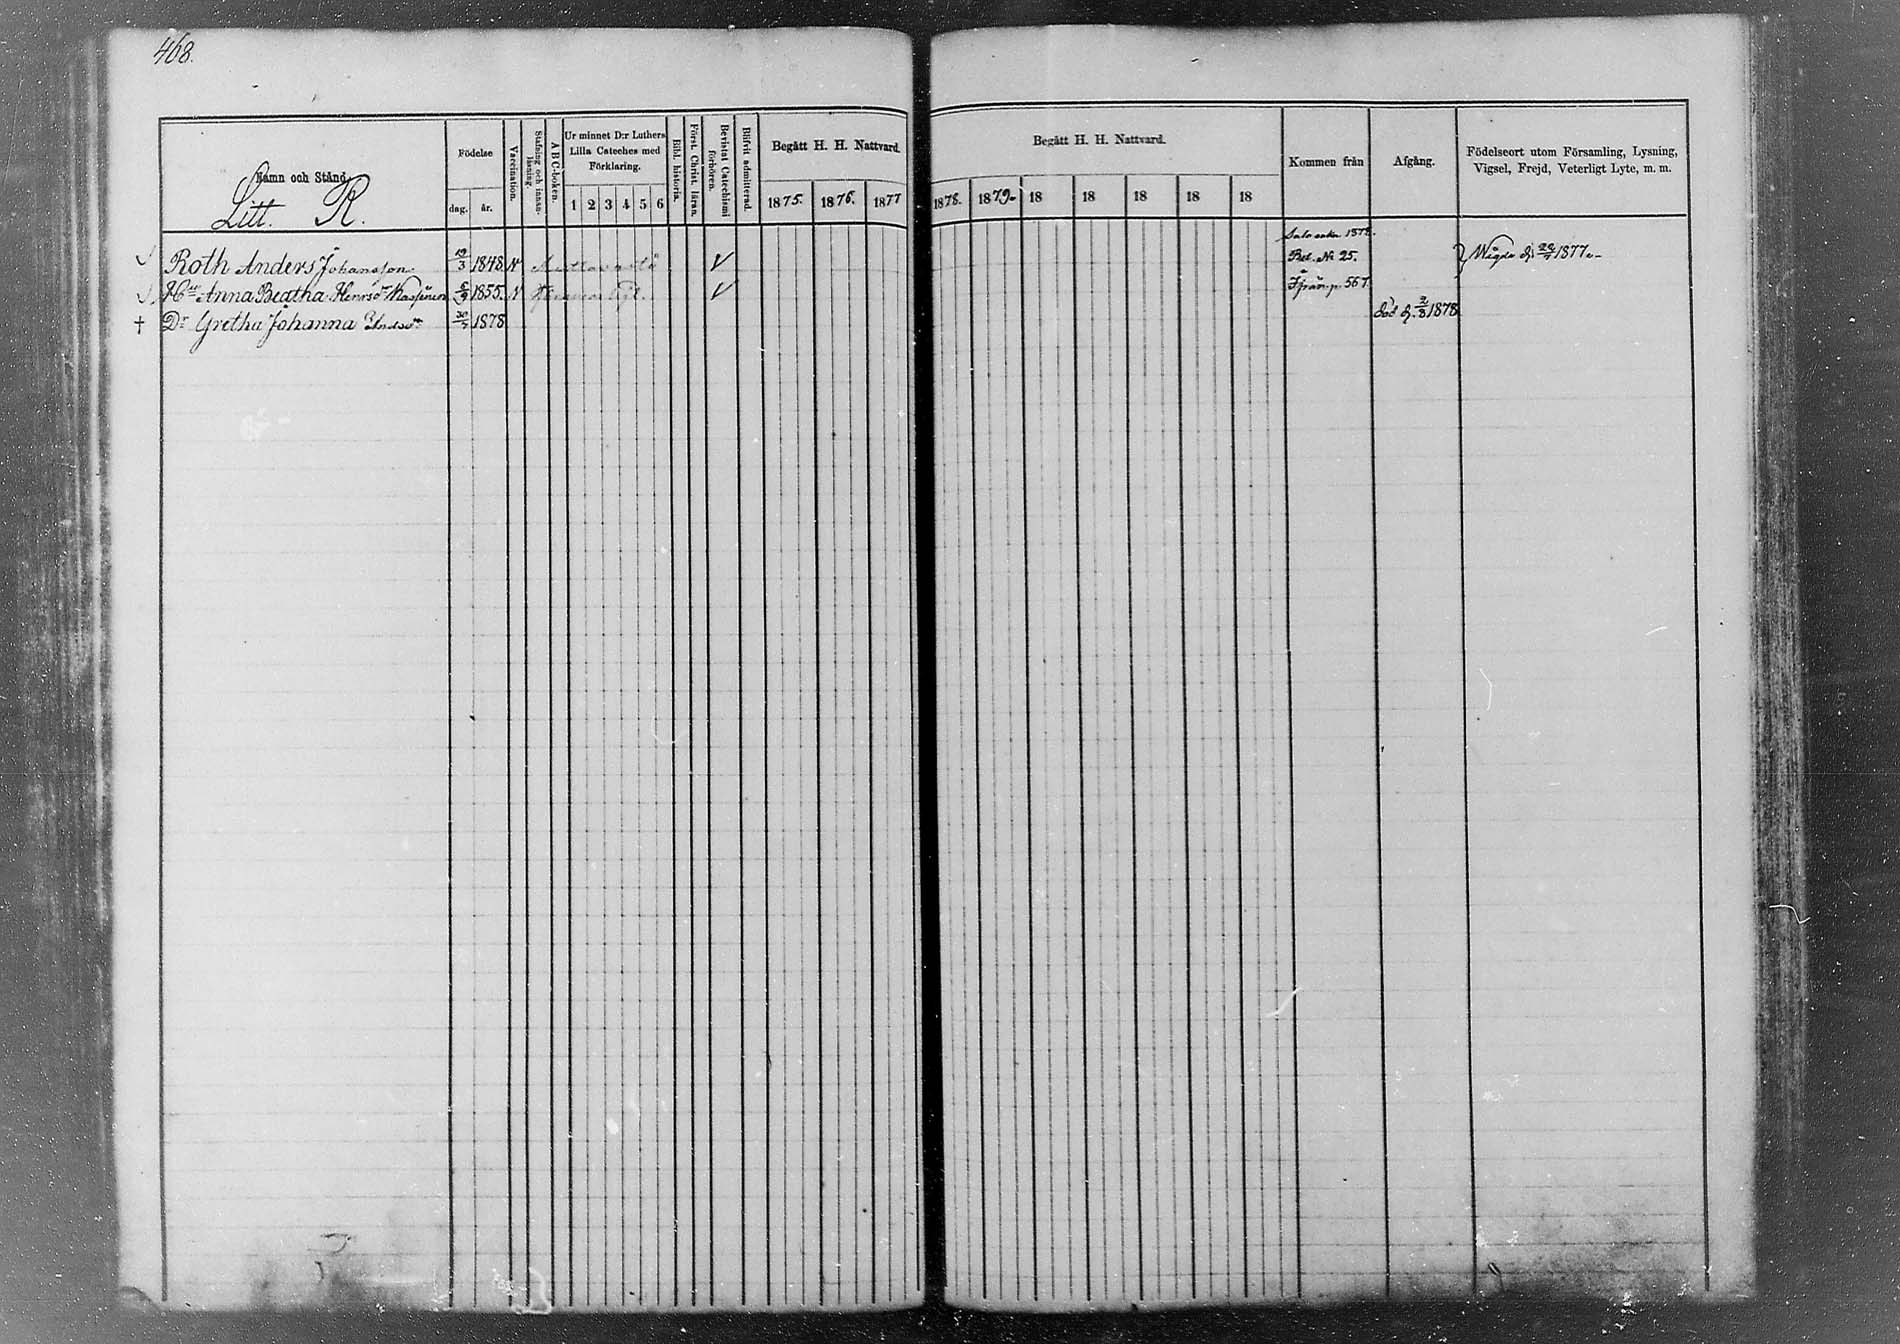 468.
Namn och Stånd.
Litt. R.
Födelse
dag. år.
Vaccination.
Stafning och innan-
läsning.
ABC-boken.
Ur minnet D:r Luthers
Lilla Cateches med
Förklaring.
1 2 3 4 5 6
Bibl. historia.
Först. Christ. läran.
Bevistat Catechismi
förhören.
Blifvit admitterad.
Begått H. H. Nattvard.
1875. 1876. 1877
Begått H. H. Nattvard.
1878. 1879. 18 18 18 18 18
Kommen från
Afgång.
Födelseort utom Församling, Lysning,
Vigsel, Frejd, Veterligt Lyte, m. m.
Roth Anders Johansson 19/3 1848 1878. Bet. No 25. Wigde d. 1877
Hu Anna Beatha Henrsdr 5/9 1855. Ifrån p. 567.
† Dr Gretha Johanna Andsdr 1878 död d. 2/8 1878